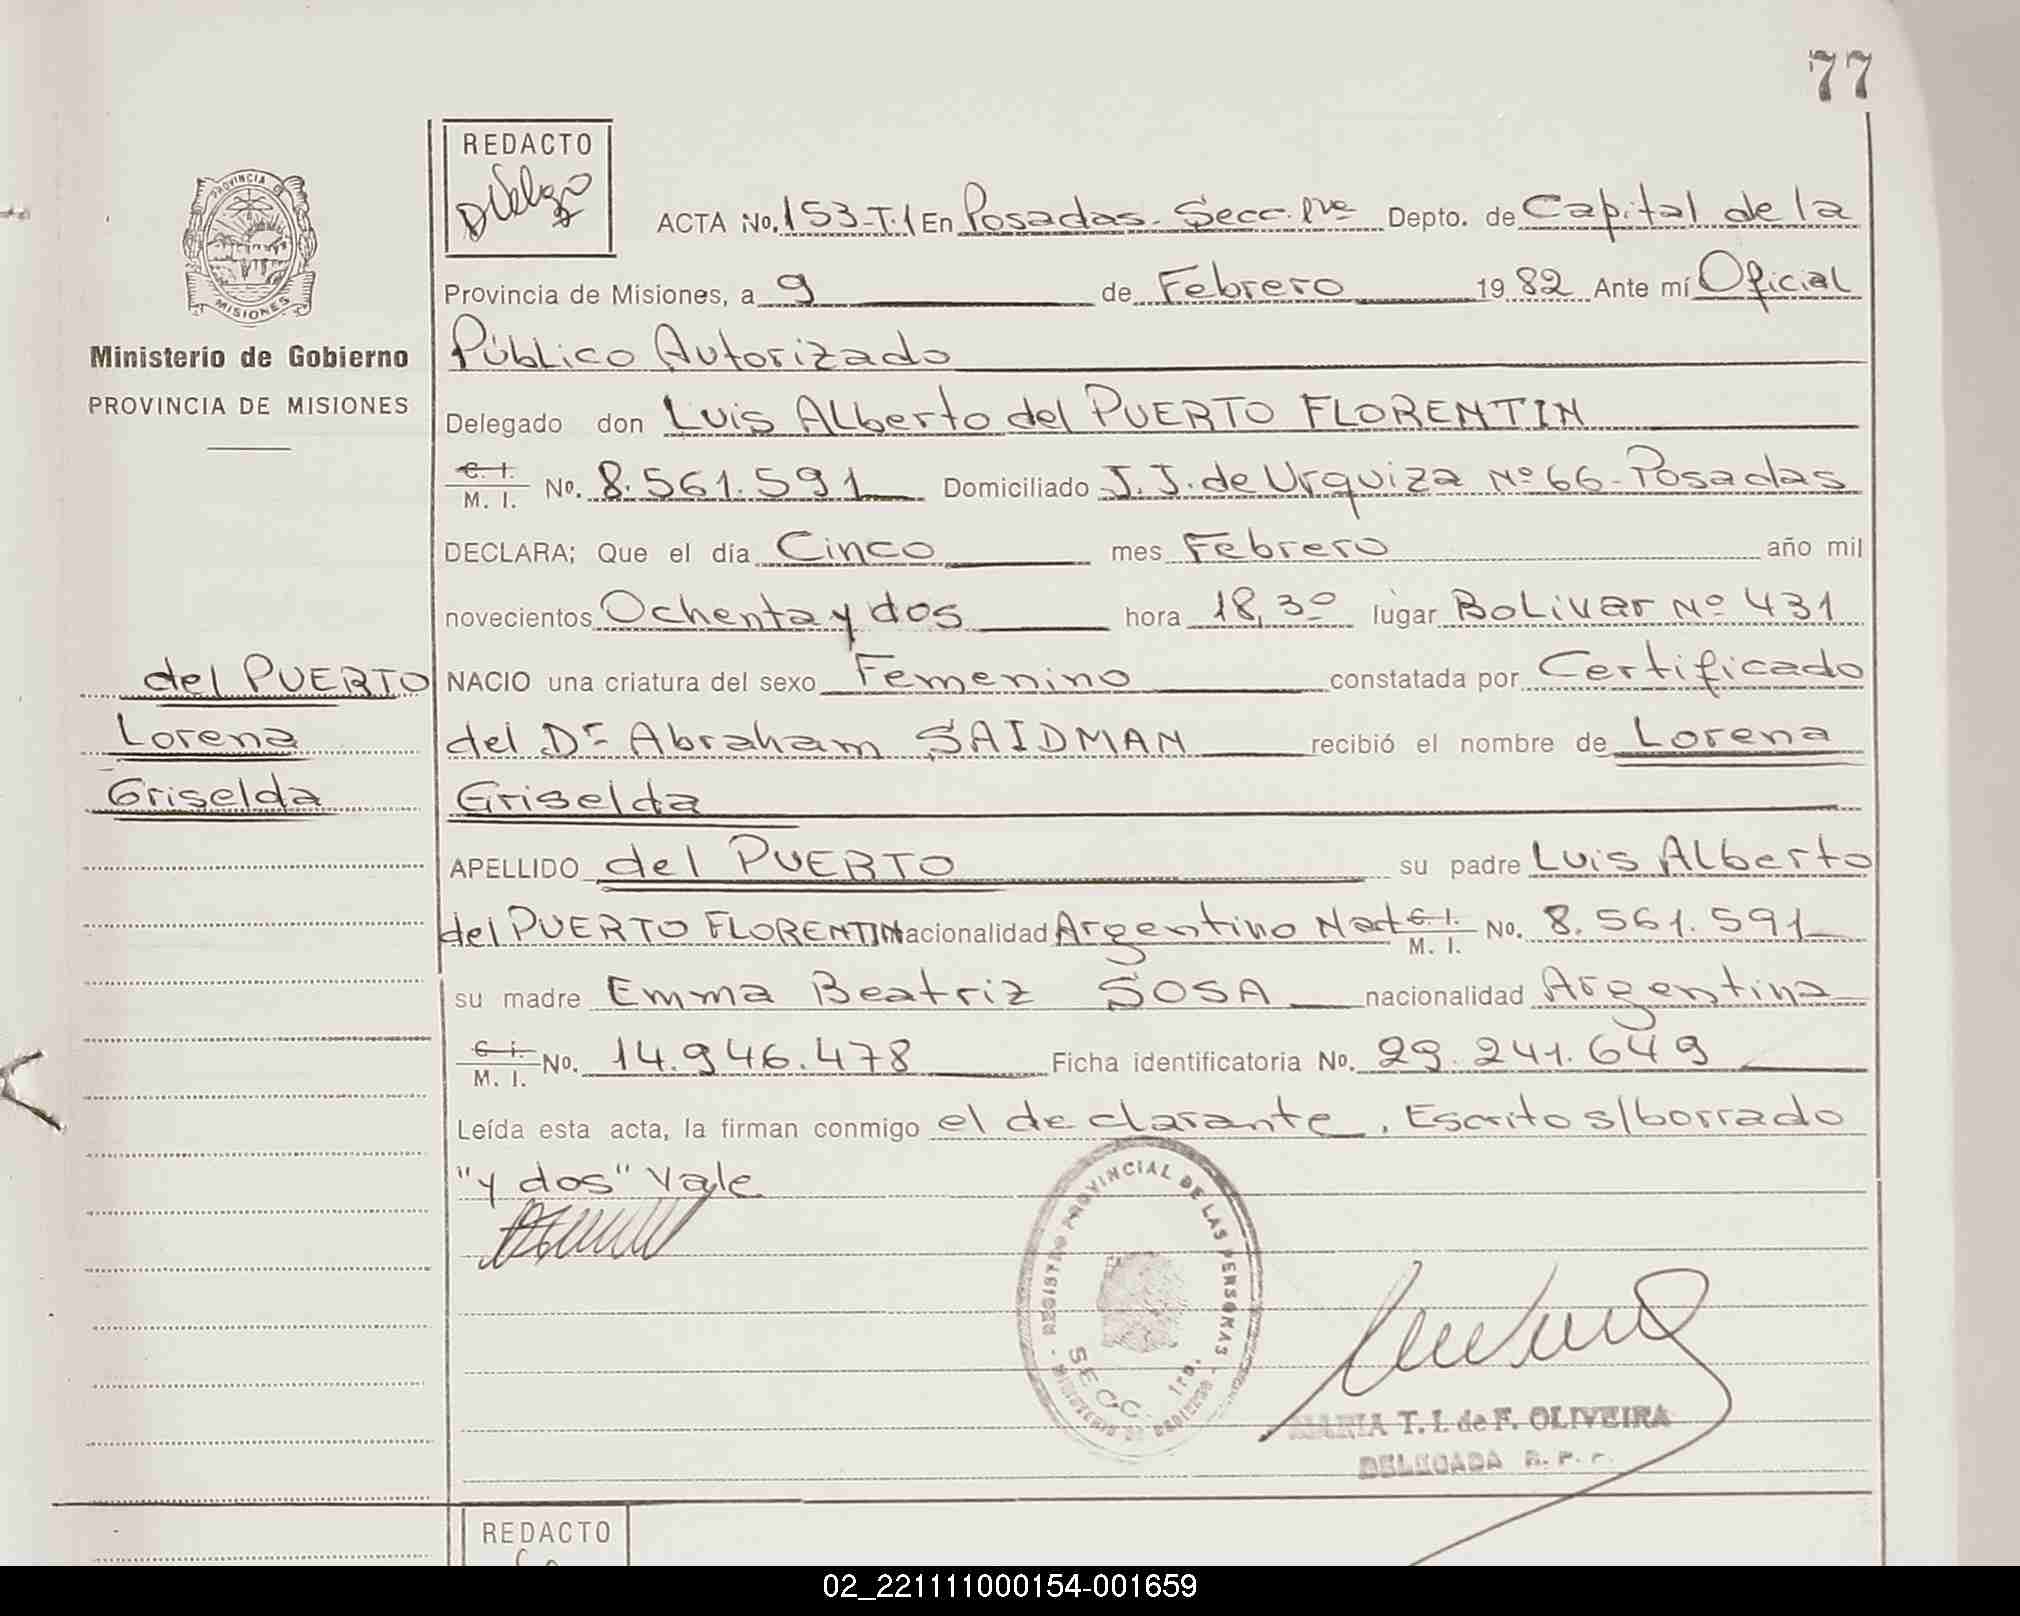 77
REDACTO
PROVINCIA DE
MISIONES
Ministerio de Gobierno
PROVINCIA DE MISIONES
ACTA No. 153-T.1 En Posadas. Secc. 1ra Depto. de Capital de la
Provincia de Misiones, a 9 de Febrero 1982 Ante mí Oficial
Público Autorizado
Delegado don Luis Alberto del PUERTO FLORENTIN
C. I. / M. I. No. 8.561.591 Domiciliado J.J. de Urquiza Nº 66-Posadas
DECLARA; Que el día Cinco mes Febrero año mil
novecientos Ochenta y dos hora 18,30 lugar Bolivar Nº 431
del PUERTO
Lorena
Griselda
NACIO una criatura del sexo Femenino constatada por Certificado
del Dr Abraham SAIDMAN recibió el nombre de Lorena
Griselda
APELLIDO del PUERTO su padre Luis Alberto
del PUERTO FLORENTIN nacionalidad Argentino Nat C. I. / M. I. No. 8.561.591
su madre Emma Beatriz SOSA nacionalidad Argentina
C. I. / M. I. No. 14.946.478 Ficha identificatoria No. 29.241.649
Leída esta acta, la firman conmigo el declarante. Escrito s/borrado
"y dos" Vale
REGISTRO PROVINCIAL DE LAS PERSONAS
SECC. 1ra.
MINISTERIO DE GOBIERNO
MARIA T. I. de F. OLIVEIRA
DELEGADA R. P. P.
REDACTO
02_221111000154-001659